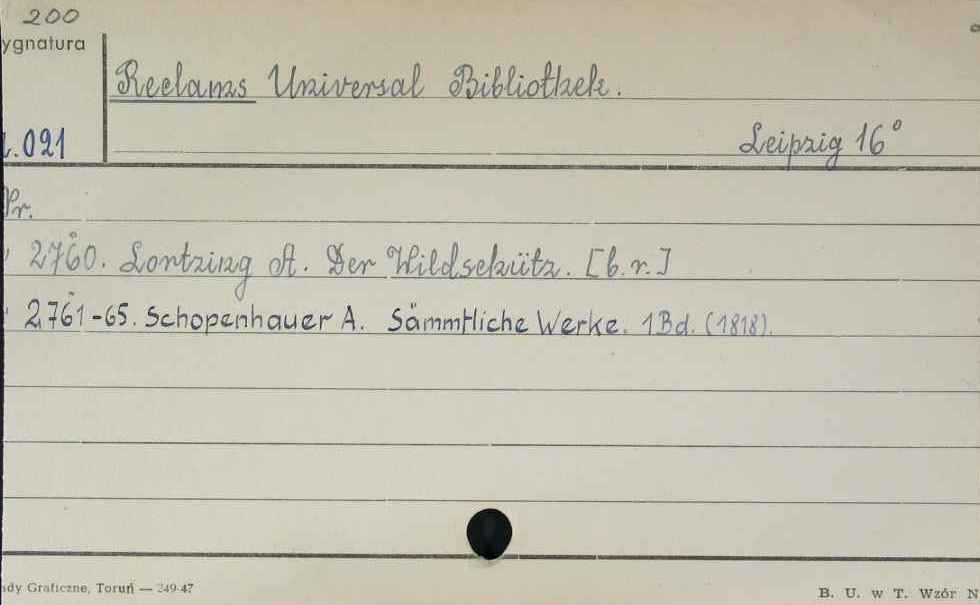 200
ygnatura
Reclams Universal Bibliothek.
.021
Leipzig 16°
Pr.
2760. Lortzing A. Der Wildschütz. [b.r.]
2761-65. Schopenhauer A. Sämmtliche Werke. 1Bd. (1818).
ady Graficzne, Toruń — 249-47
B. U. w T. Wzór N